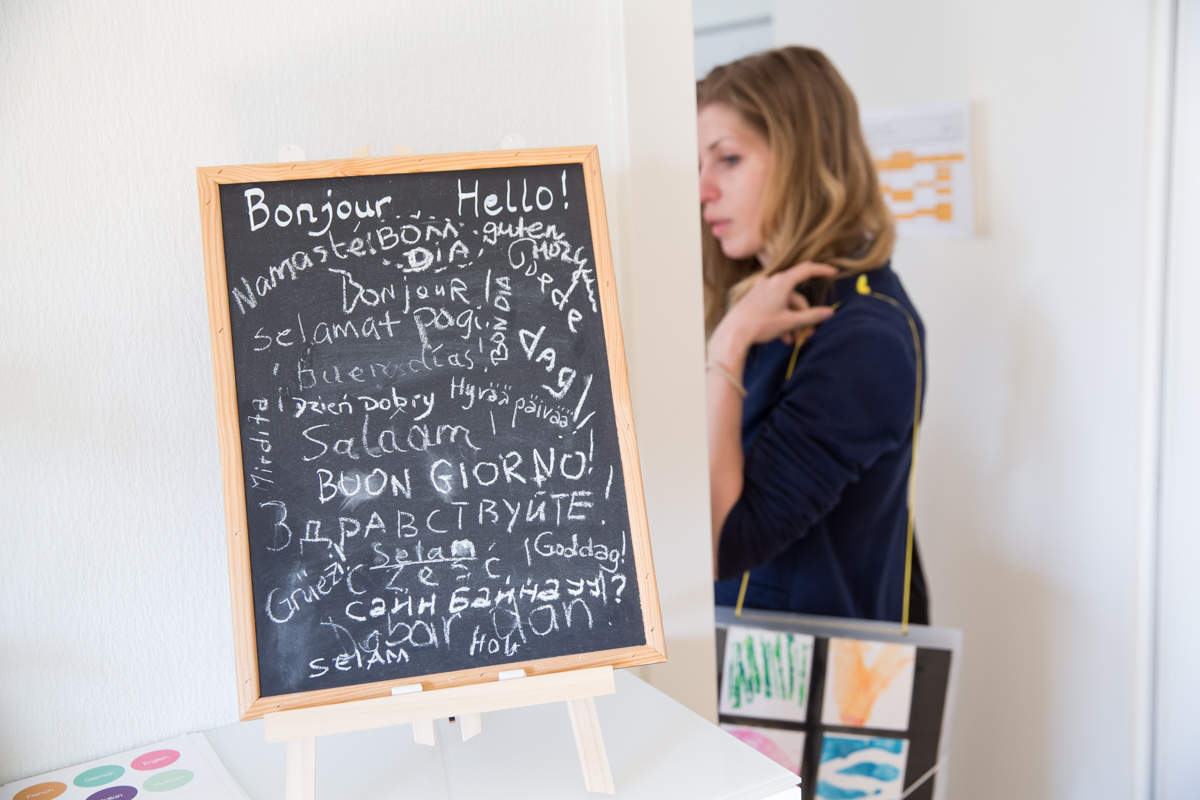 Bonjour Hello!
Namasté! BOM DIA guten Morgen
Goede dag!
BonjouR !
BON DIA
selamat pagi
¡buenos días!
Hyvää päivää!
dzień Dobry
Mirdita!
Salaam !
BUON GIORNO!
ЗДРАВСТВУЙТЕ!
Selam
¡Goddag!
Grüezi
CZEŚĆ
сайн байна уу?
Dobar dan!
SELAM
Hola
French
German
English
Italian